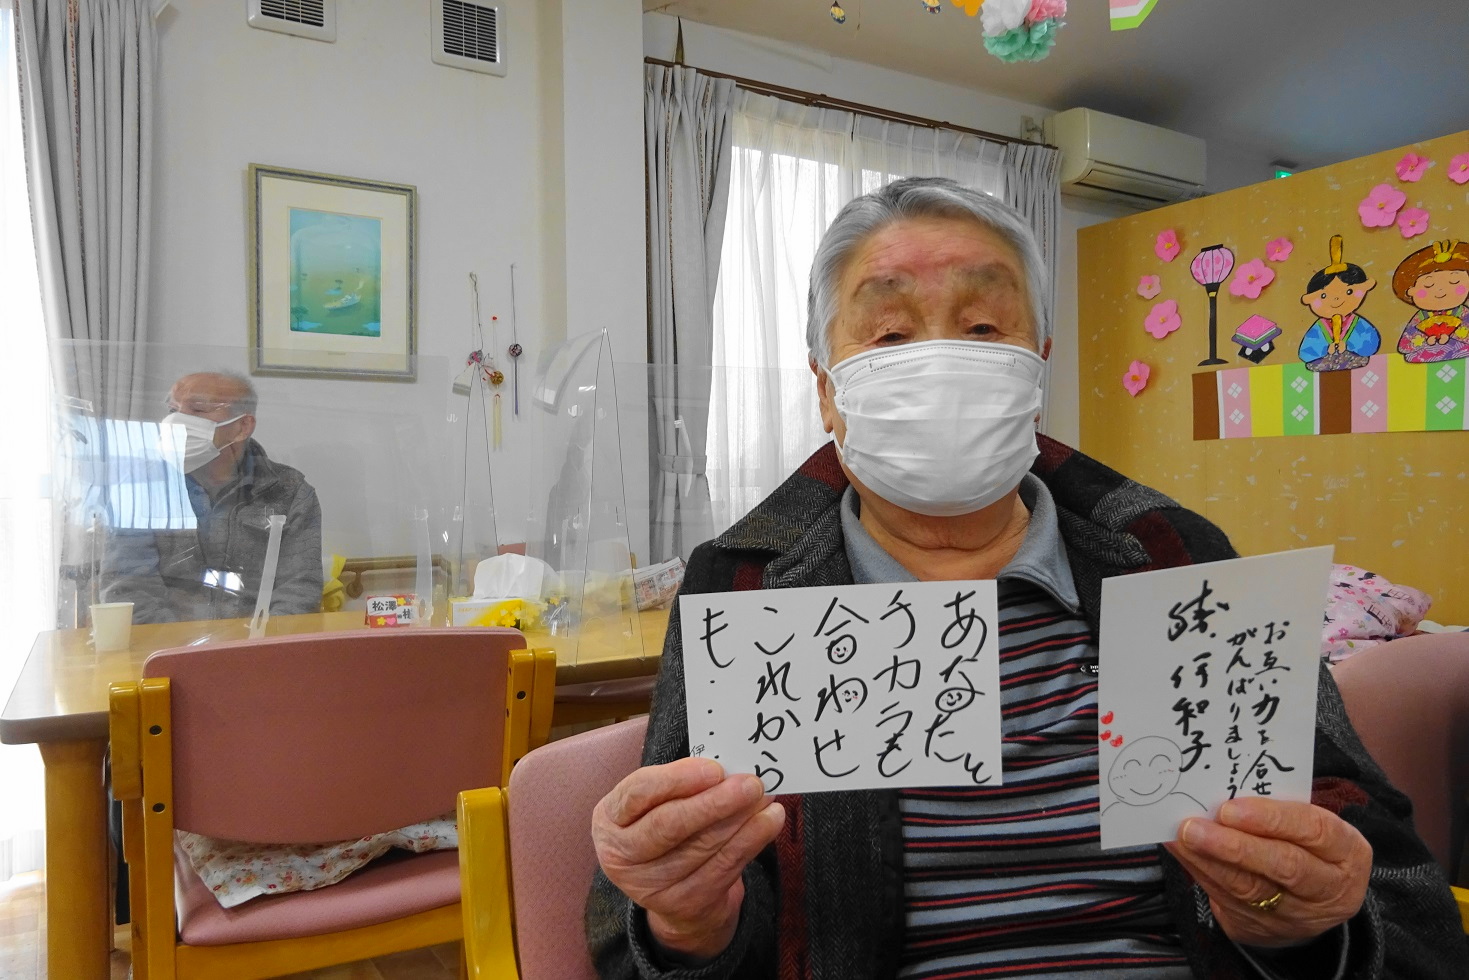 あなたと
チカラを
合わせ
これから
も・・・・
伊
お互い力を合せ
がんばりましょう
松澤